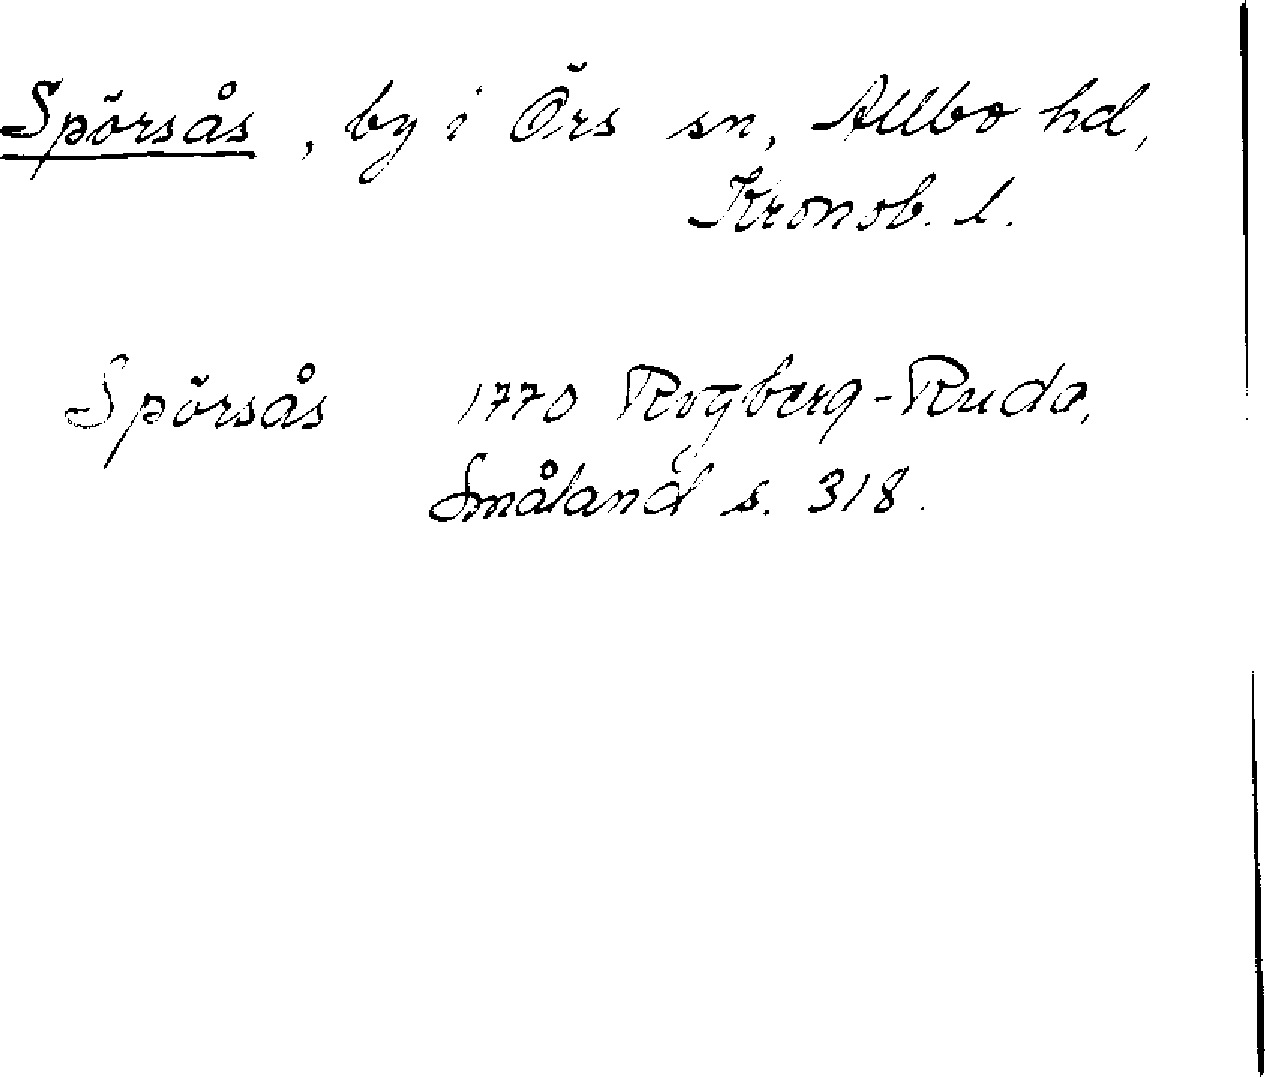 Spörsås, by i Örs sn, Allbo hd,
Kronob. l.
Spörsås 1770 Rogberg-Ruda,
Småland s. 318.